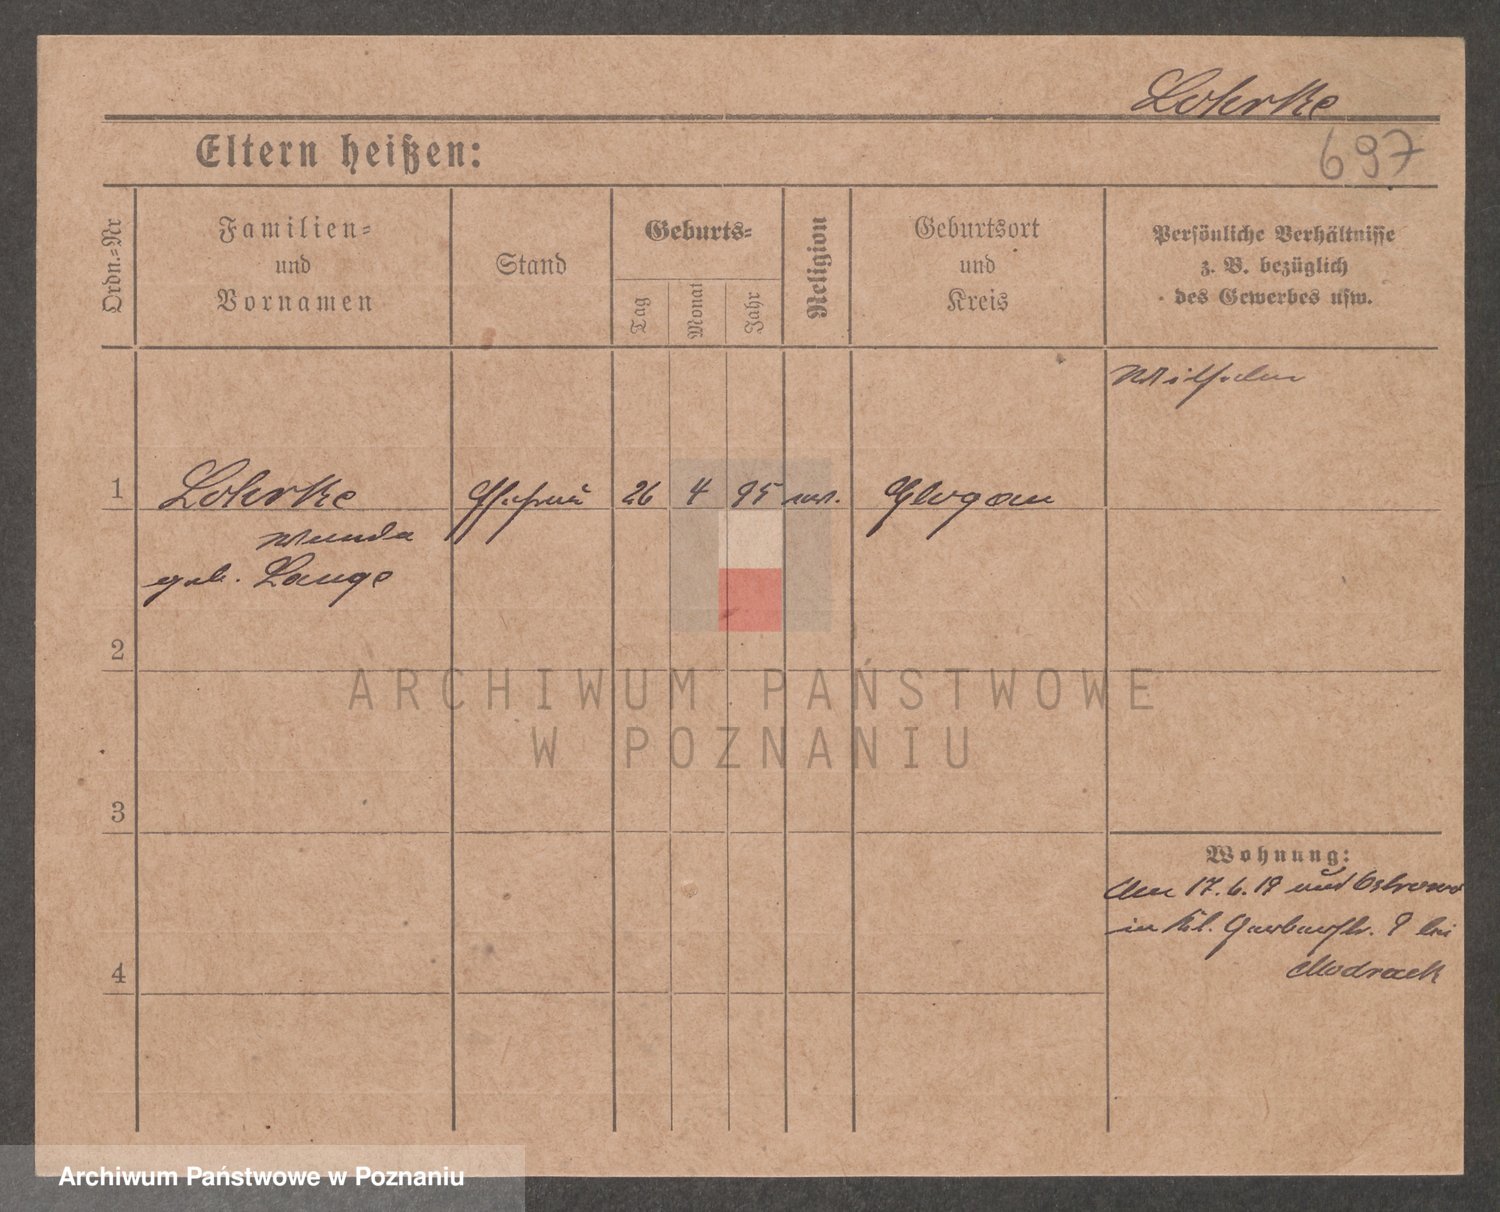 Lohrke
697
Eltern heißen:
Ordn.-Nr
Familien-
und
Vornamen
Stand
Geburts-
Tag
Monat
Jahr
Religion
Geburtsort
und
Kreis
Persönliche Verhältnisse
z. B. bezüglich
des Gewerbes usw.
Wilhelm
1 Lohrke Ehefrau 26 4 95 Glogau
Wanda
geb. Lange
2
ARCHIWUM PAŃSTWOWE
W POZNANIU
3
Wohnung:
Am 17.6.19 Ostrowo
in Kl. Gerberstr. 9 bei
4
Modrack
Archiwum Państwowe w Poznaniu